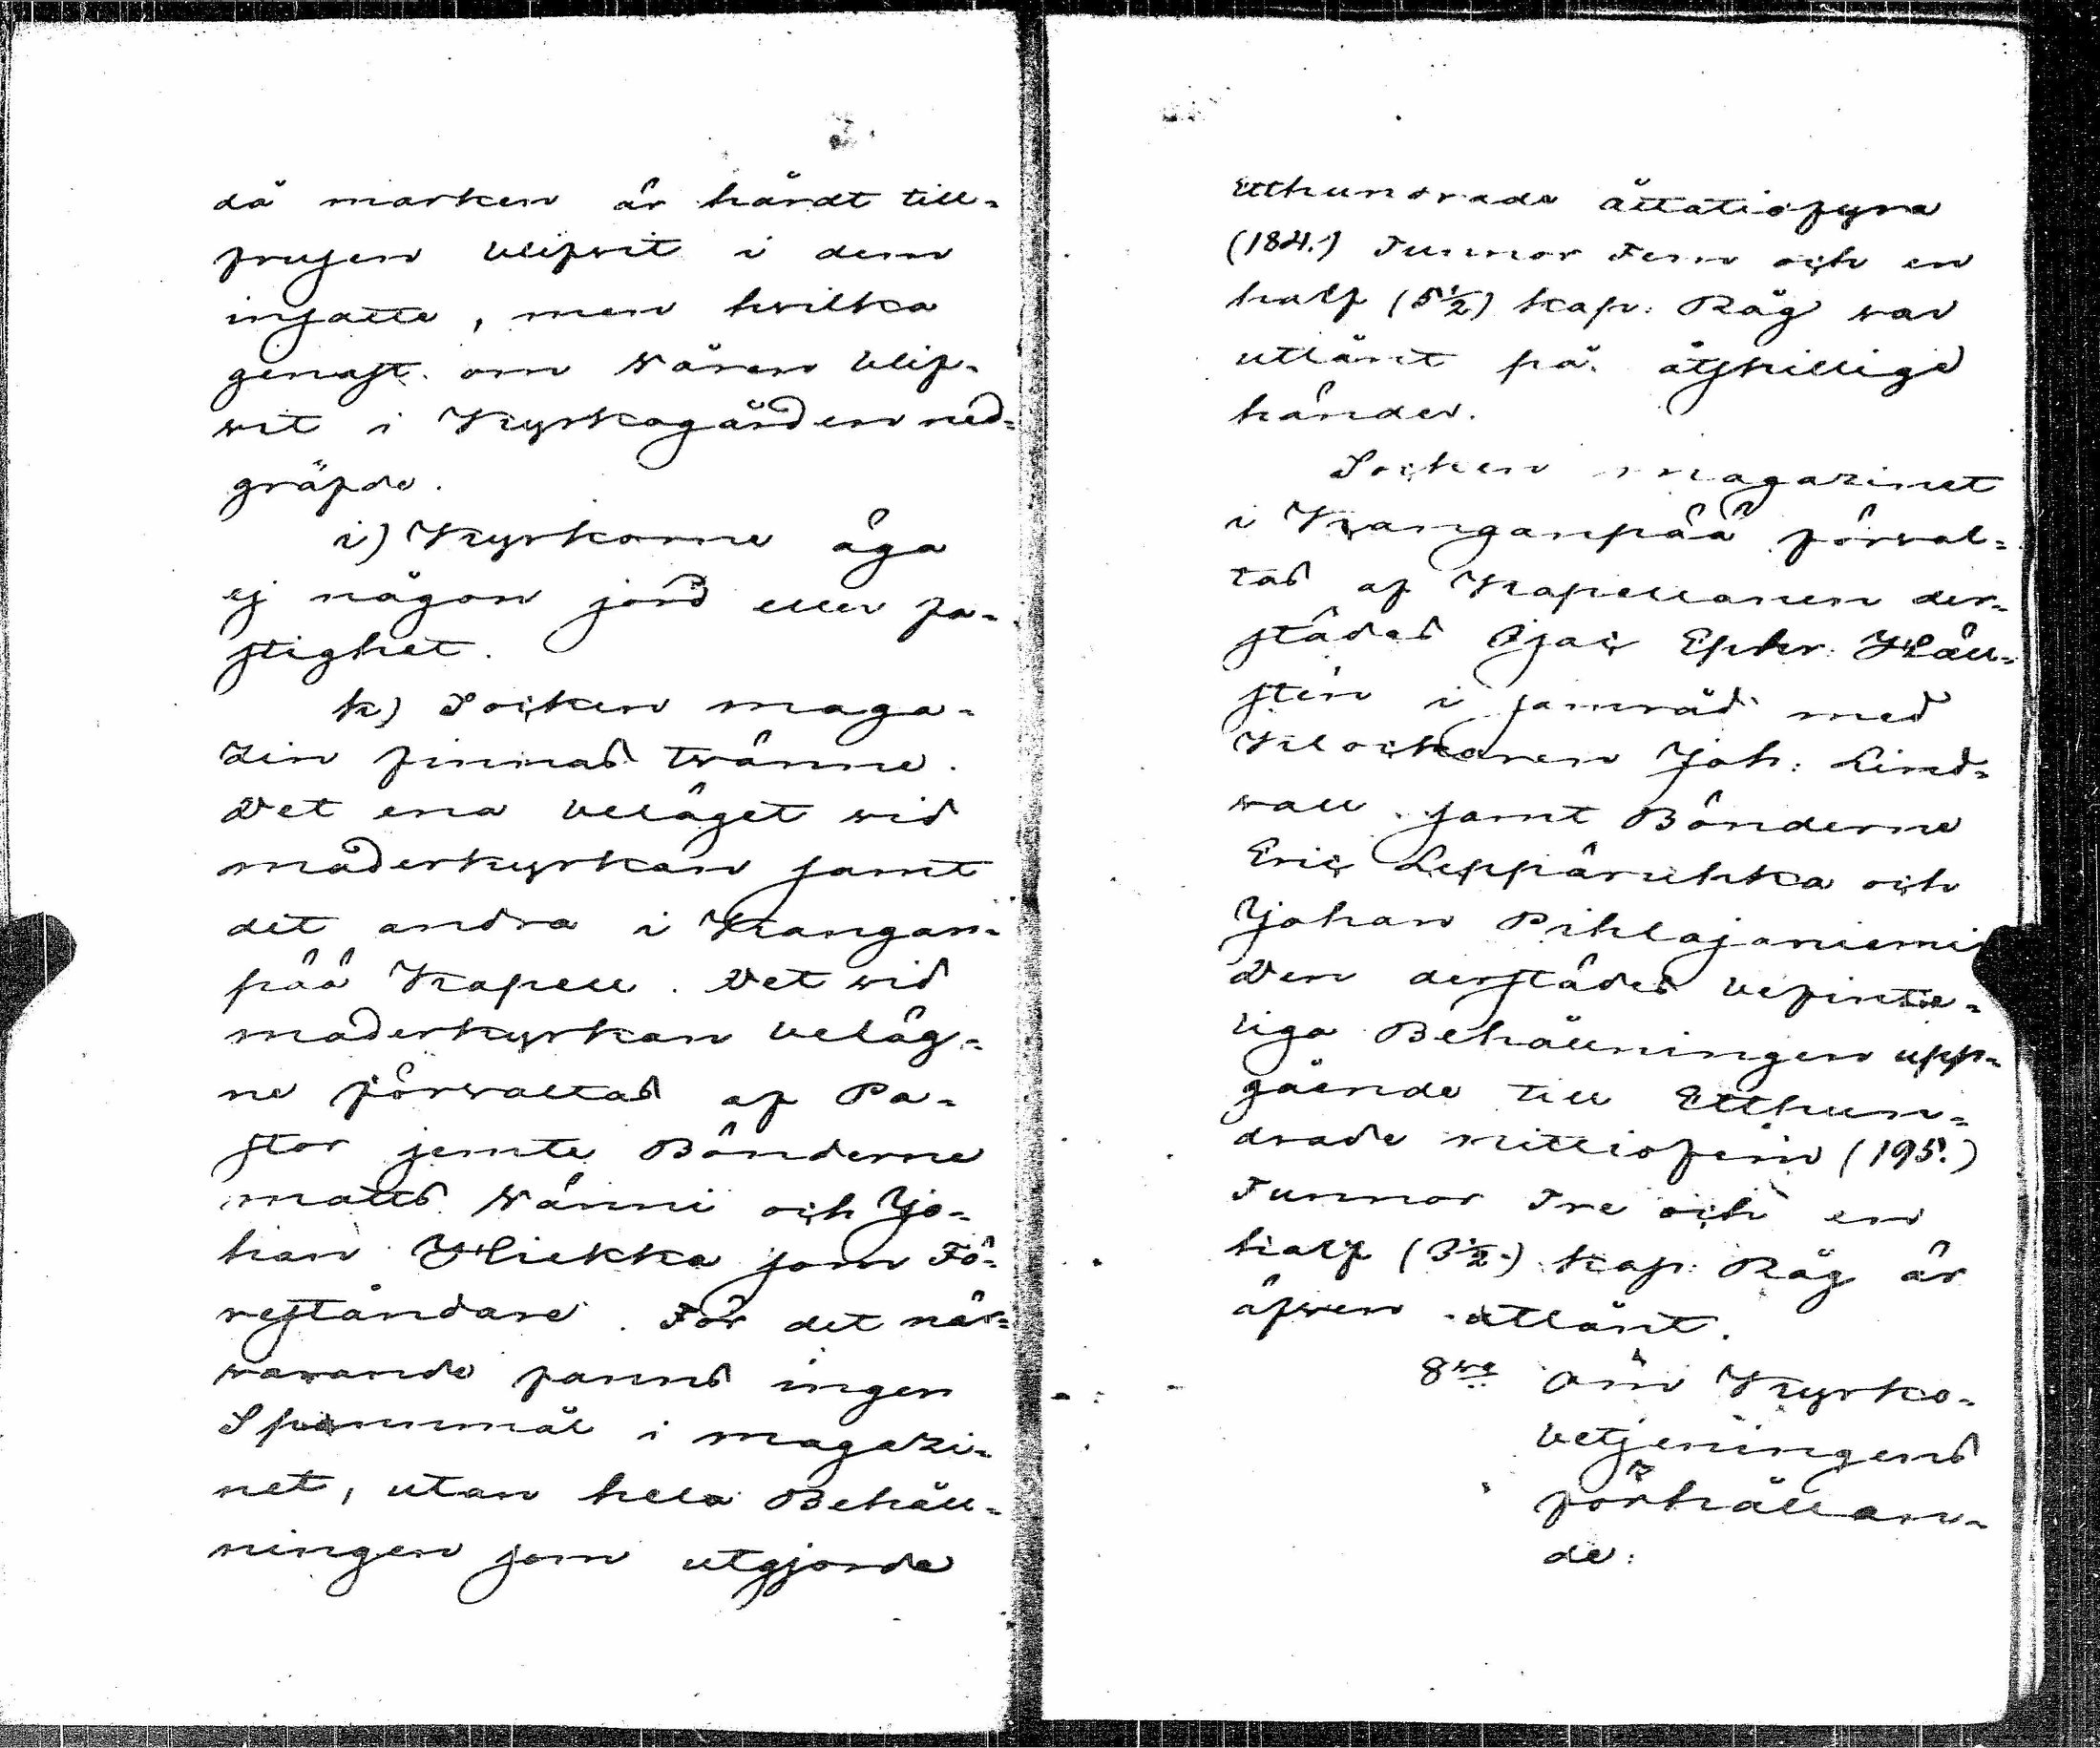 då marken är hårdt till-
frusen blifvit i dem
insatte, men hvilka
genast om Våren blif-
vit i Kyrkogården ned-
gräfde.
i) Kyrkorne äga
ej någon jord eller fa-
stighet.
k) Socken maga-
zin finnas tvänne.
Det ena beläget vid
moderkyrkan samt
det andra i Kangan-
pää Kapell. Det vid
moderkyrkan beläg-
ne förvaltas af Pa-
stor jemte Bönderne
Matts Vänni och Jo-
han Hliekka som Fö-
reståndare. För det när-
varande fanns ingen
Spannmål i magazi-
net, utan hela Behåll-
ningen som utgjorde
Etthundrade åttatiofyra
(184.) Tunnor Fem och en
half (5½) kap: Råg var
utlänt på åtskillige
händer.
Socken magazinet
i Kanganpää förval-
tas af Kapellanen der-
städes Isac Ephr: Häll-
stén i samråd med
Klockaren Joh: Lind-
vall samt Bönderne
Eric Leppäruhka och
Johan Pihlajaniemi
Den derstädes befinte-
liga Behållningen upp-
gående till Etthun-
drade nittiofem (195.)
Tunnor Tre och en
half (3½.) kap: Råg är
äfven utlänt.
8va Om Kyrko-
betjeningens
förhållan-
de: